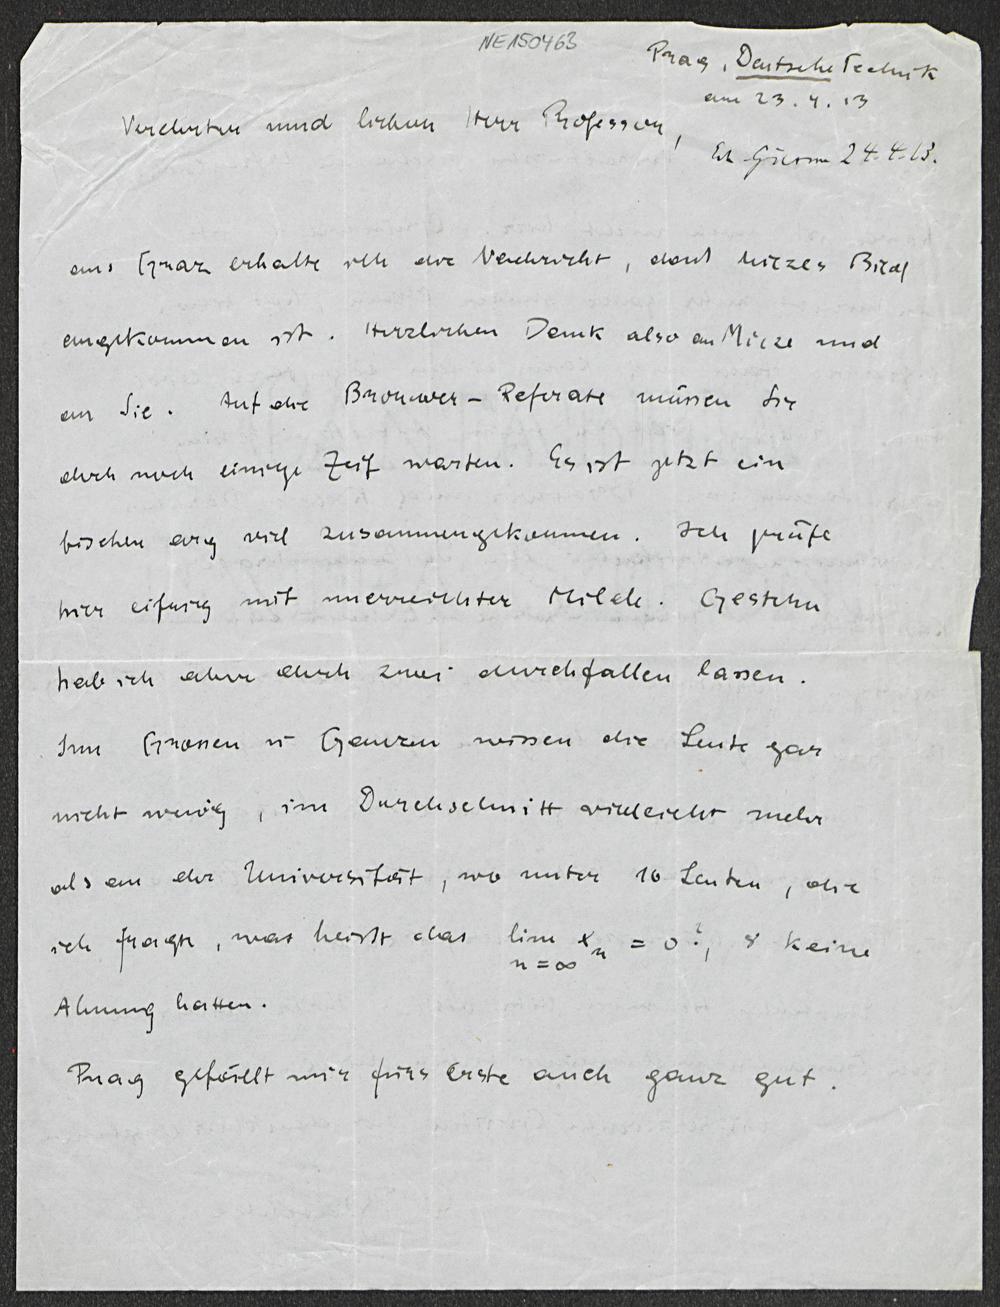 NE150463
Prag, Deutsche Technik
am 23.4.13
Verehrter und lieber Herr Professor,
24.4.13.
aus Graz erhalte ich die Nachricht, dass Miezes Bild
angekommen ist. Herzlichen Dank also an Mieze und
an Sie. Auf die Brouwer-Referate müssen Sie
doch noch einige Zeit warten. Es ist jetzt ein
bischen arg viel zusammengekommen. Ich prüfe
hier eifrig mit unerreichter Milde. Gestern
hab ich aber doch zwei durchfallen lassen.
Im Grossen u Ganzen wissen die Leute gar
nicht wenig, im Durchschnitt vielleicht mehr
als an der Universität, wo unter 10 Leuten, die
ich fragte, was heisst das lim x_n = 0?, 8 keine
n=∞
Ahnung hatten.
Prag gefällt mir fürs Erste auch ganz gut.